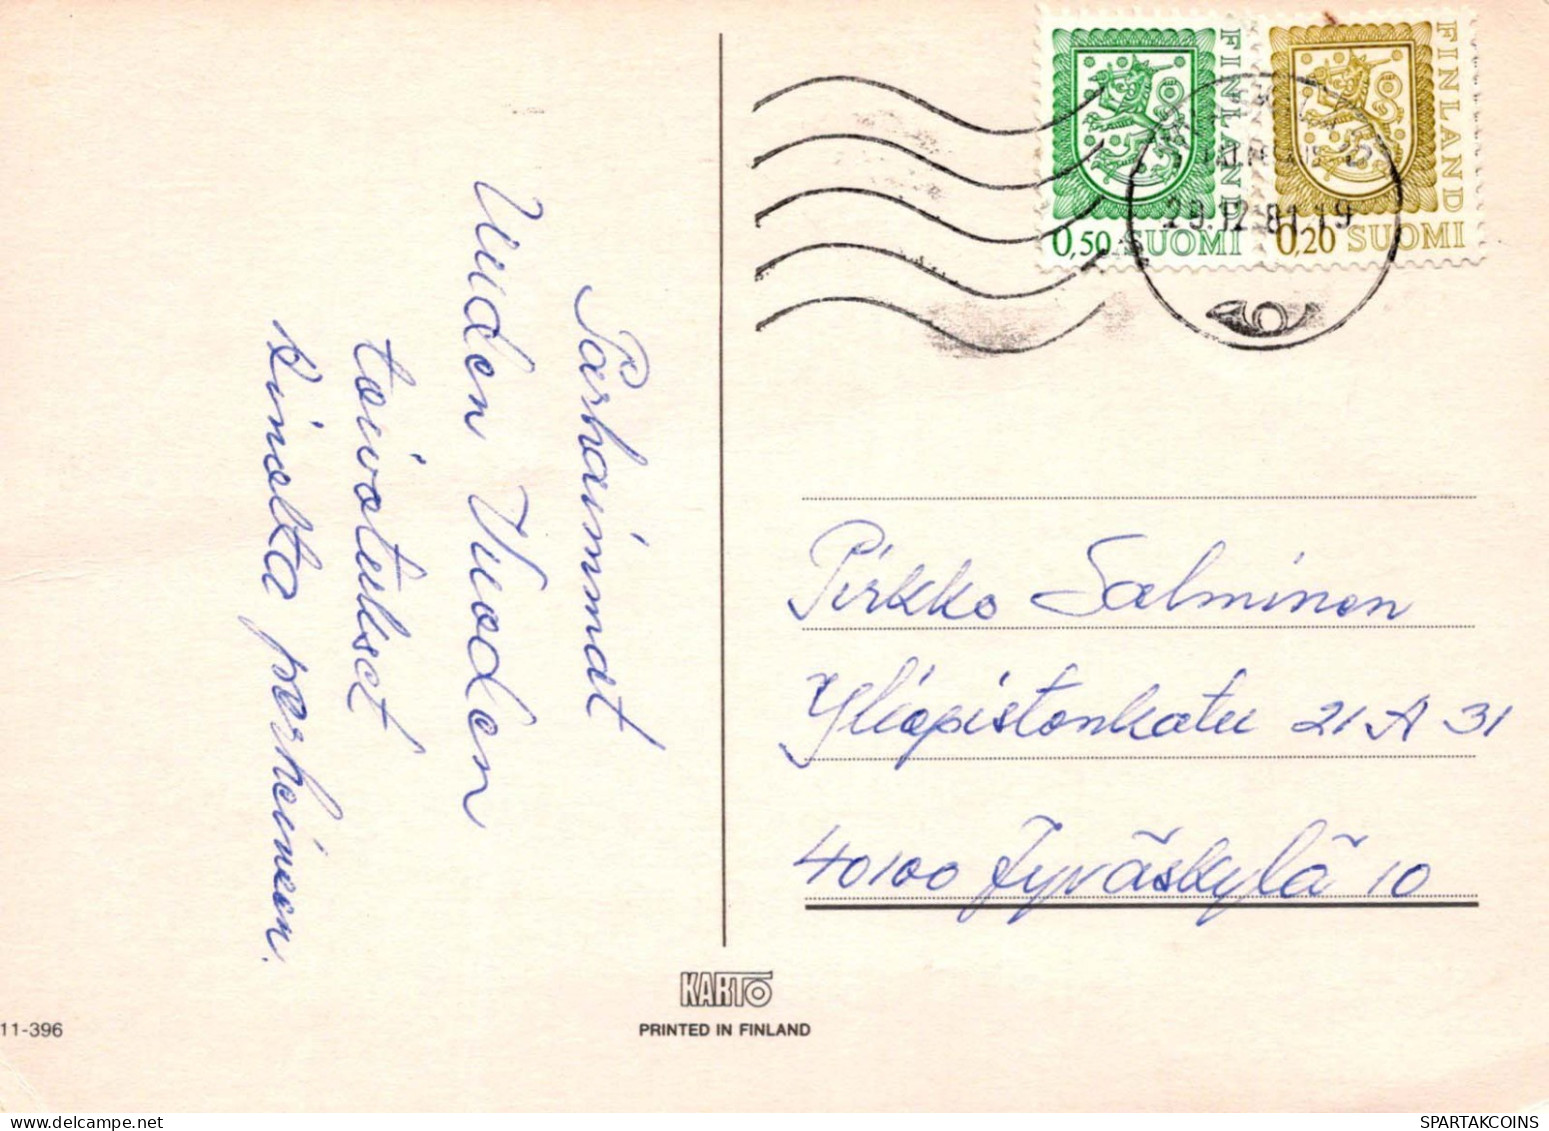 Parhaimmat
Uuden Vuoden
toivotukset
perheineen.
FINLAND
0,50 SUOMI
FINLAND
0,20 SUOMI
29.12.81.19
Pirkko Salminen
Yliopistonkatu 21 A 31
40100 Jyväskylä 10
KARTO
PRINTED IN FINLAND
11-396
SPARTAKCOINS